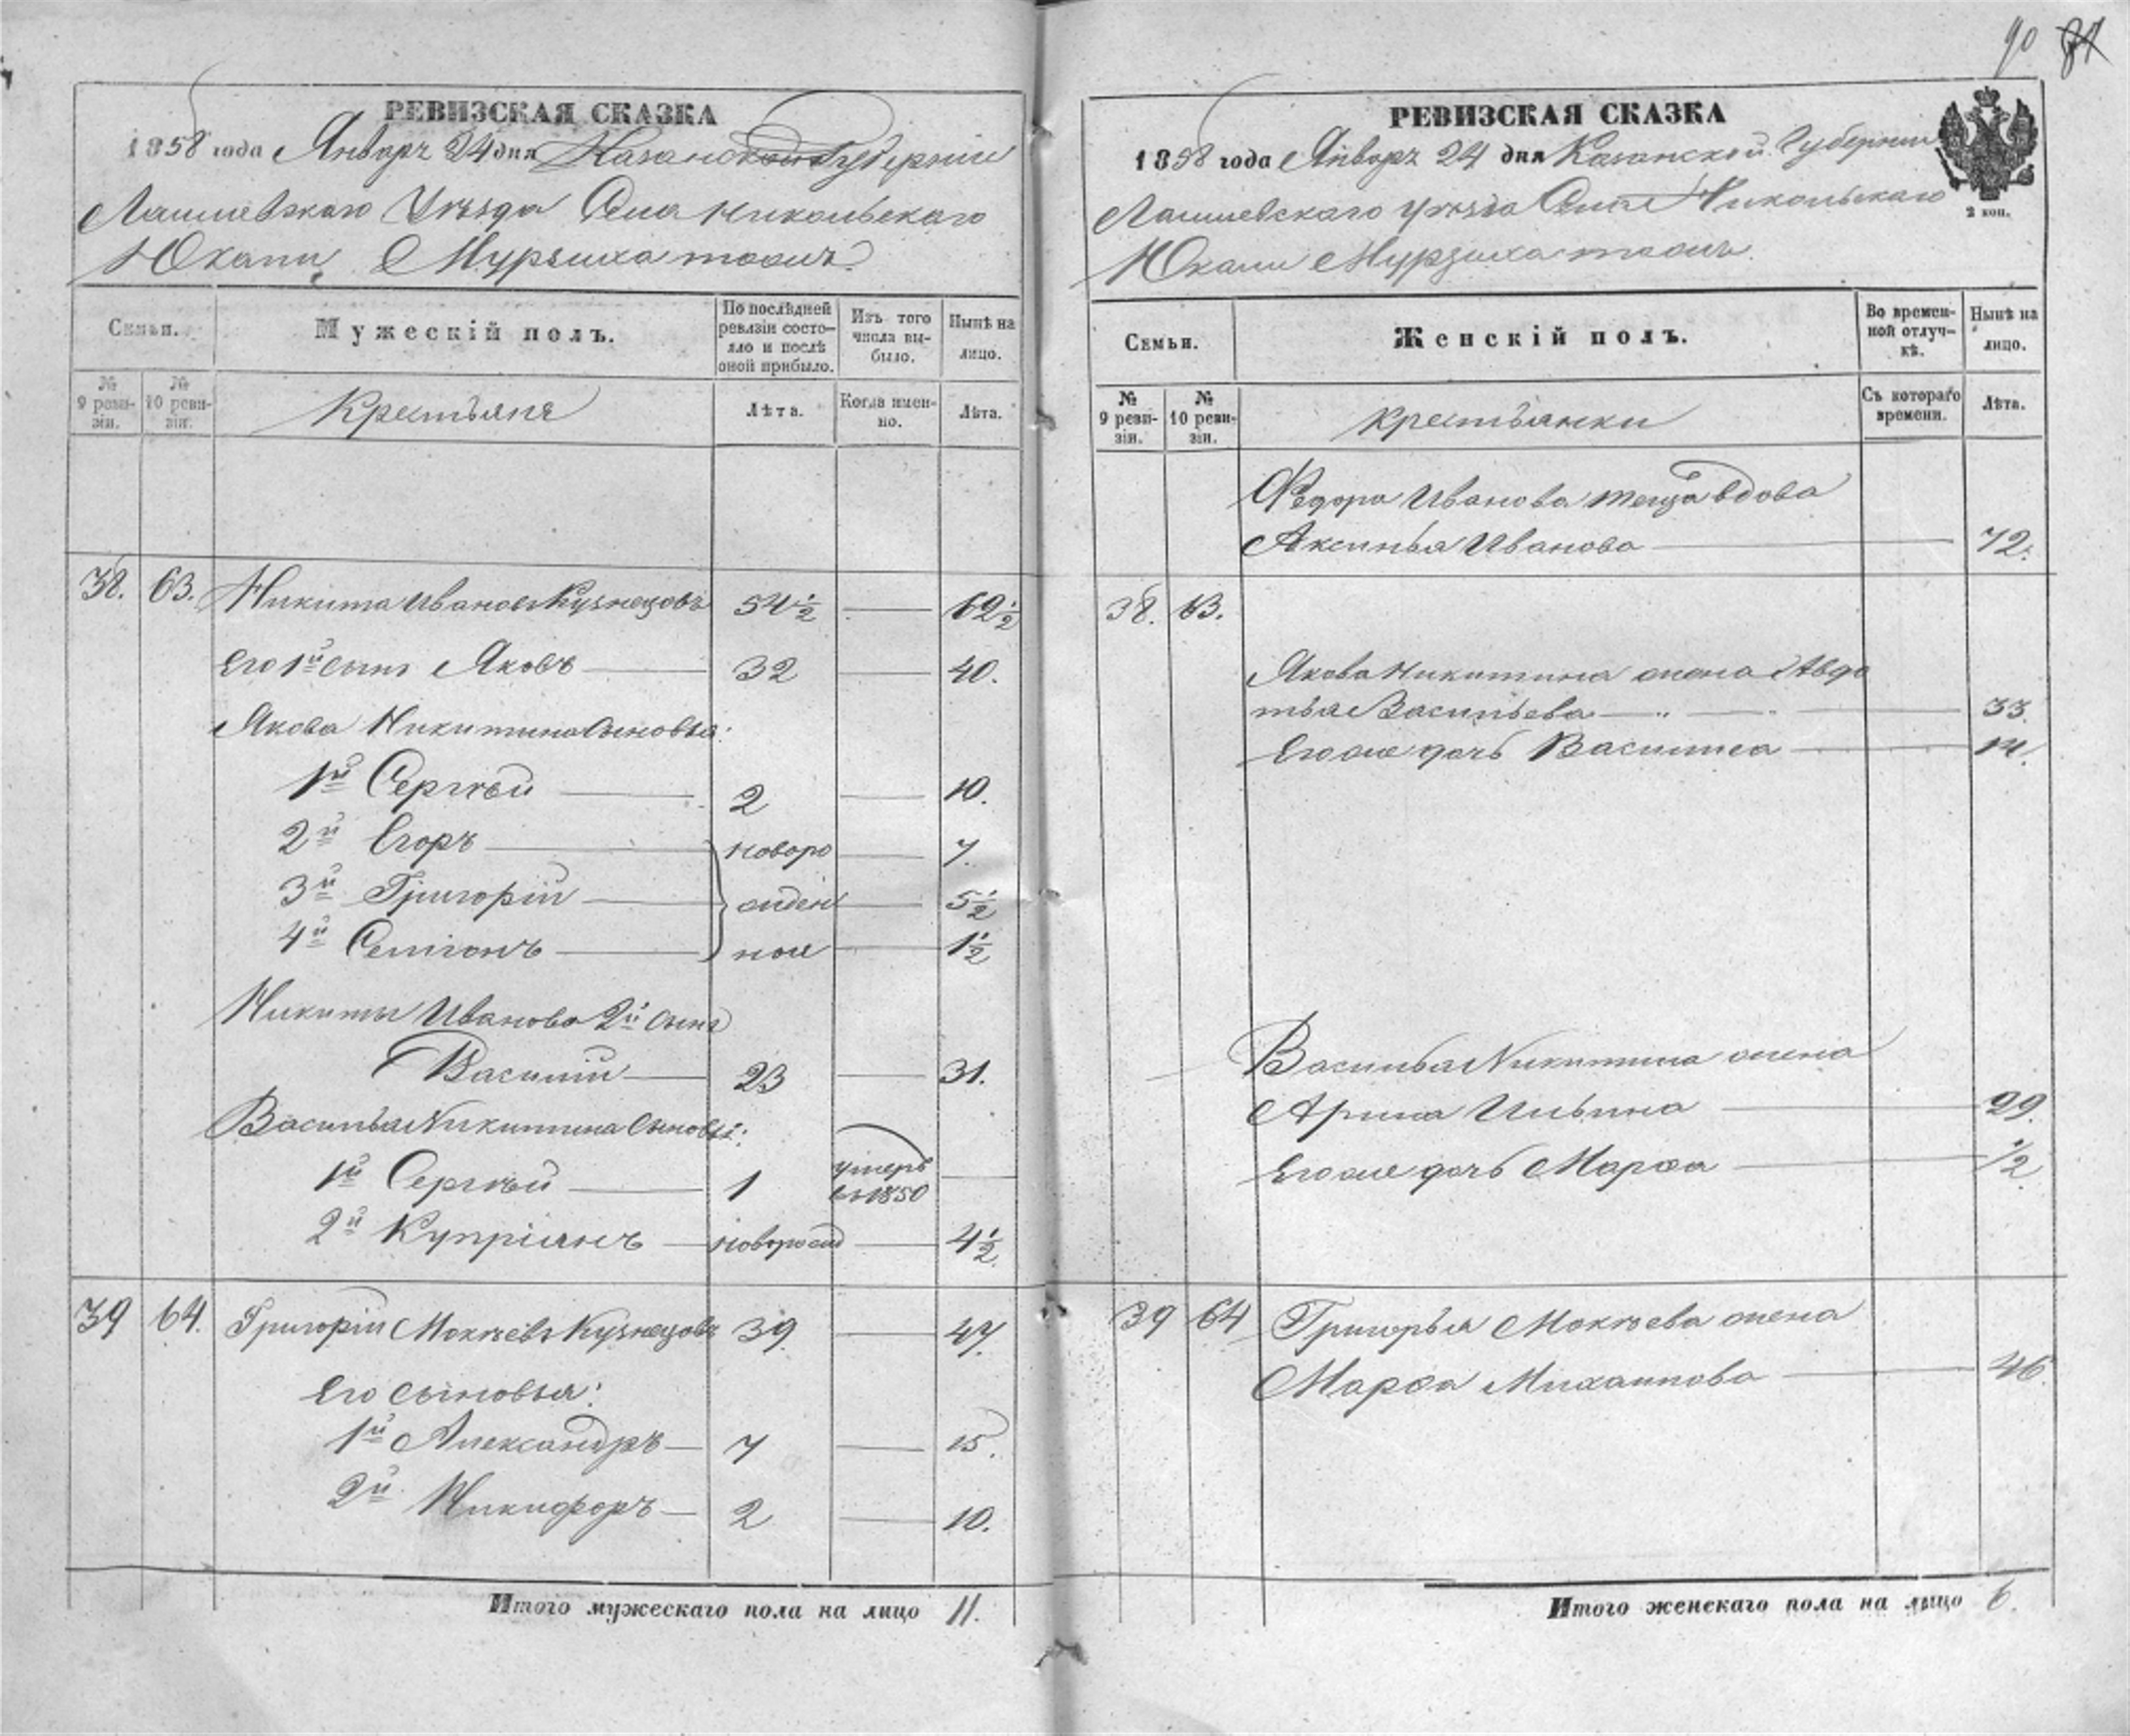 РЕВИЗСКАЯ СКАЗКА
1858 года Январѧ 24 дня Казанской Губерніи
Лаишевскаго Уѣзда Села Никольскаго
Юкали Мурзиха тожъ.
Семьи.
Мужескій полъ.
По послѣдней ревизіи состояло и послѣ оной прибыло.
Изъ того числа выбыло.
Нынѣ на лицо.
№ 9 ревизіи.
№ 10 ревизіи.
Крестьяне
Лѣта.
Когда именно.
Лѣта.
38. 63. Никита Ивановъ Кузнецовъ 54½ — 62½
Его 1й сынъ Яковъ — 32 — 40.
Якова Никитина сыновья:
1й Сергѣй — 2 — 10.
2й Егоръ — новоро — 7.
3й Григорій — жден — 5½
4й Семіонъ — ные — 1½
Никиты Иванова 2й сынъ
Василій — 23 — 31.
Василья Никитина сыновья:
1й Сергѣй — 1 умеръ въ 1850 —
2й Купріянъ — новорожд — 4½.
39 64. Григорій Мокѣевъ Кузнецовъ 39. — 47.
Его сыновья:
1й Александръ — 7 — 15.
2й Никифоръ — 2 — 10.
Итого мужескаго пола на лицо 11.
90 87
РЕВИЗСКАЯ СКАЗКА
1858 года Январѧ 24 дня Казанской Губерніи
2 коп.
Лаишевскаго Уѣзда Села Никольскаго
Юкали Мурзиха тожъ.
Семьи.
Женскій полъ.
Во временной отлучкѣ.
Нынѣ на лицо.
№ 9 ревизіи.
№ 10 ревизіи.
Крестьянки
Съ котораго времени.
Лѣта.
Федора Иванова теща вдова
Аксинья Иванова — 72.
38. 63.
Якова Никитина жена Авдо
тья Васильева — 33.
Его же дочь Василиса — 14.
Василья Никитина жена
Арина Ильина — 29.
Его же дочь Марѳа — ½
39 64 Григорья Мокѣева жена
Марѳа Михайлова — 46.
Итого женскаго пола на лицо 6.